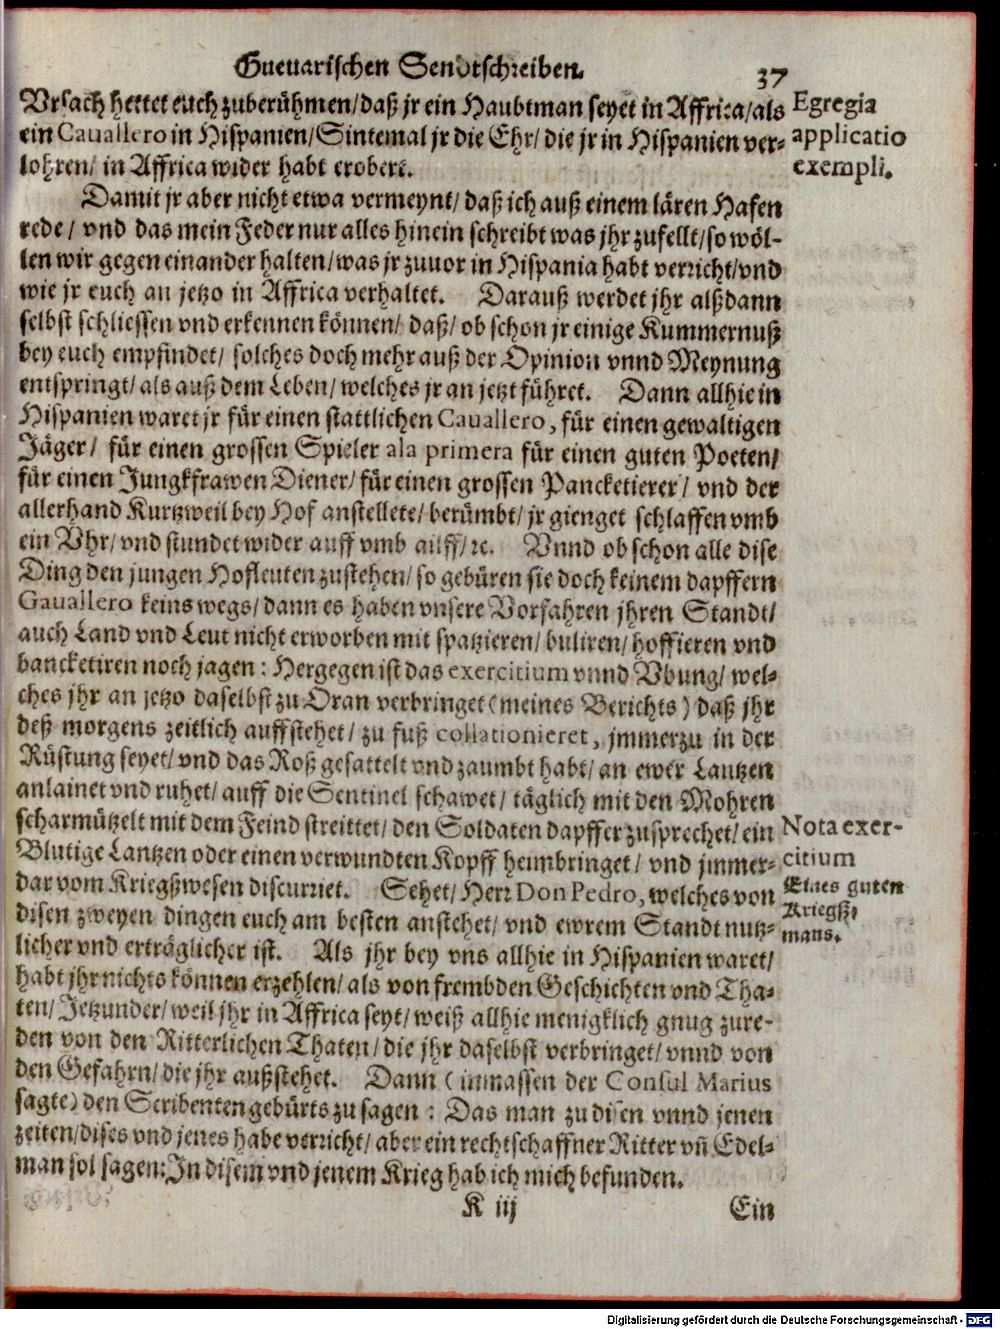 Gueuarischen Sendtschreiben.
37
Vrsach hettet euch zuberühmen/daß jr ein Haubtman seyet in Affrica/als
ein Cauallero in Hispanien/Sintemal jr die Ehr/die jr in Hispanien ver-
lohren/in Affrica wider habt erobert.
Egregia
applicatio
exempli.
Damit jr aber nicht etwa vermeynt/daß ich auß einem lären Hafen
rede/vnd das mein Feder nur alles hinein schreibt was jhr zufellt/so wöl-
len wir gegen einander halten/was jr zuuor in Hispania habt verricht/vnd
wie jr euch an jetzo in Affrica verhaltet. Darauß werdet jhr alßdann
selbst schliessen vnd erkennen können/daß/ob schon jr einige Kummernuß
bey euch empfindet/solches doch mehr auß der Opinion vnnd Meynung
entspringt/als auß dem Leben/welches jr an jetzt führet. Dann allhie in
Hispanien waret jr für einen stattlichen Cauallero, für einen gewaltigen
Jäger/für einen grossen Spieler ala primera für einen guten Poeten/
für einen Jungkfrawen Diener/für einen grossen Pancketierer/vnd der
allerhand Kurtzweil bey Hof anstellete/berümbt/jr gienget schlaffen vmb
ein Vhr/vnd stundet wider auff vmb ailff/ꝛc. Vnnd ob schon alle dise
Ding den jungen Hofleuten zustehen/so gebüren sie doch keinem dapffern
Gauallero keins wegs/dann es haben vnsere Vorfahren jhren Standt/
auch Land vnd Leut nicht erworben mit spatzieren/buliren/hoffieren vnd
bancketiren noch jagen: Hergegen ist das exercitium vnnd Vbung/wel-
ches jhr an jetzo daselbst zu Oran verbringet (meines Berichts) daß jhr
deß morgens zeitlich auffstehet/zu fuß collationieret, jmmerzu in der
Rüstung seyet/vnd das Roß gesattelt vnd zaumbt habt/an ewer Lantzen
anlainet vnd ruhet/auff die Sentinel schawet/täglich mit den Mohren
scharmützelt mit dem Feind streittet/den Soldaten dapffer zusprechet/ein
Blutige Lantzen oder einen verwundten Kopff heimbringet/vnd jmmer-
dar vom Kriegßwesen discurriet. Sehet/Herr Don Pedro, welches von
disen zweyen dingen euch am besten anstehet/vnd ewrem Standt nutz-
licher vnd erträglicher ist. Als jhr bey vns allhie in Hispanien waret/
habt jhr nichts können erzehlen/als von frembden Geschichten vnd Tha-
ten/Jetzunder/weil jhr in Affrica seyt/weiß allhie menigklich gnug zure-
den von den Ritterlichen Thaten/die jhr daselbst verbringet/vnnd von
den Gefahrn/die jhr außstehet. Dann (inmassen der Consul Marius
sagte) den Scribenten gebürts zu sagen: Das man zu disen vnnd jenen
zeiten/dises vnd jenes habe verricht/aber ein rechtschaffner Ritter vn̄ Edel-
man sol sagen: In disem vnd jenem Krieg hab ich mich befunden.
Nota exer-
citium
Eines guten
Kriegß-
mans.
K iij
Ein
Digitalisierung gefördert durch die Deutsche Forschungsgemeinschaft - DFG